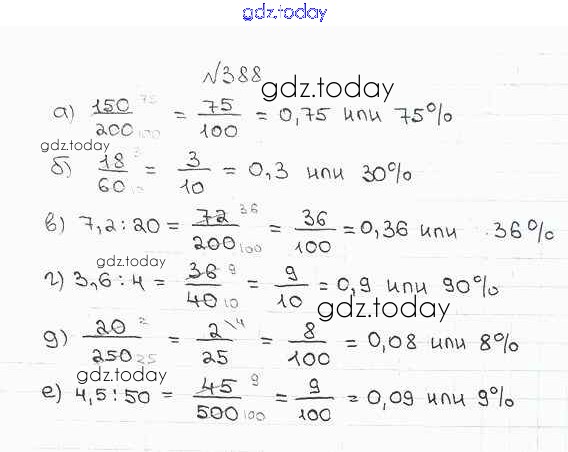 gdz.today
№388
gdz.today
а) 150/200 75 100 = 75/100 = 0,75 или 75%
gdz.today
б) 18/60 3 10 = 3/10 = 0,3 или 30%
в) 7,2 : 20 = 72/200 36 100 = 36/100 = 0,36 или 36%
gdz.today
г) 3,6 : 4 = 36/40 9 10 = 9/10 = 0,9 или 90%
gdz.today
д) 20/250 2 25 = 2/25 \4 = 8/100 = 0,08 или 8%
gdz.today
е) 4,5 : 50 = 45/500 9 100 = 9/100 = 0,09 или 9%